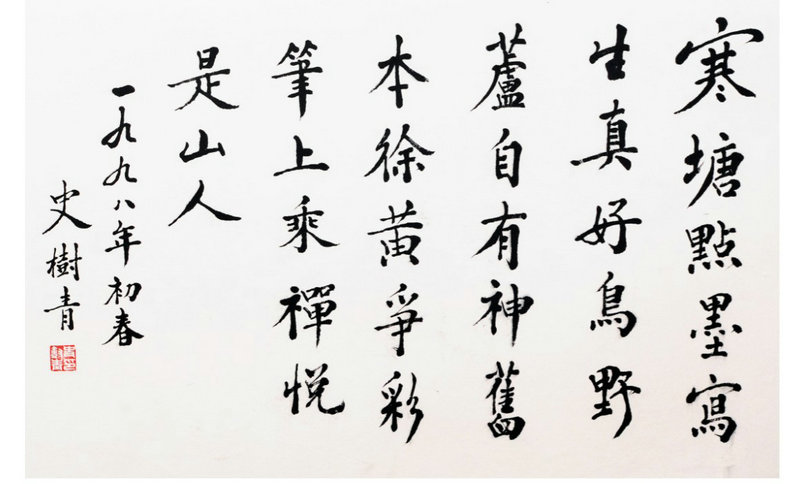 寒塘點墨寫
生真好鳥野
蘆自有神舊
本徐黃爭彩
筆上乘禪悅
是山人
一九九八年初春
史樹青